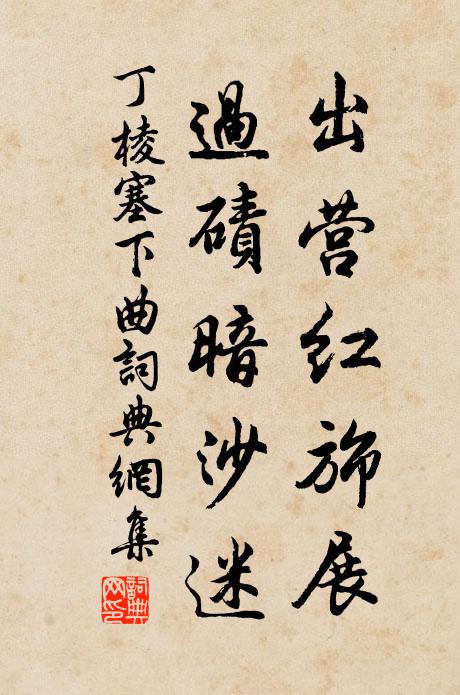 出营红旆展
過磧暗沙迷
丁棱塞下曲詞典網集
詞典
网印